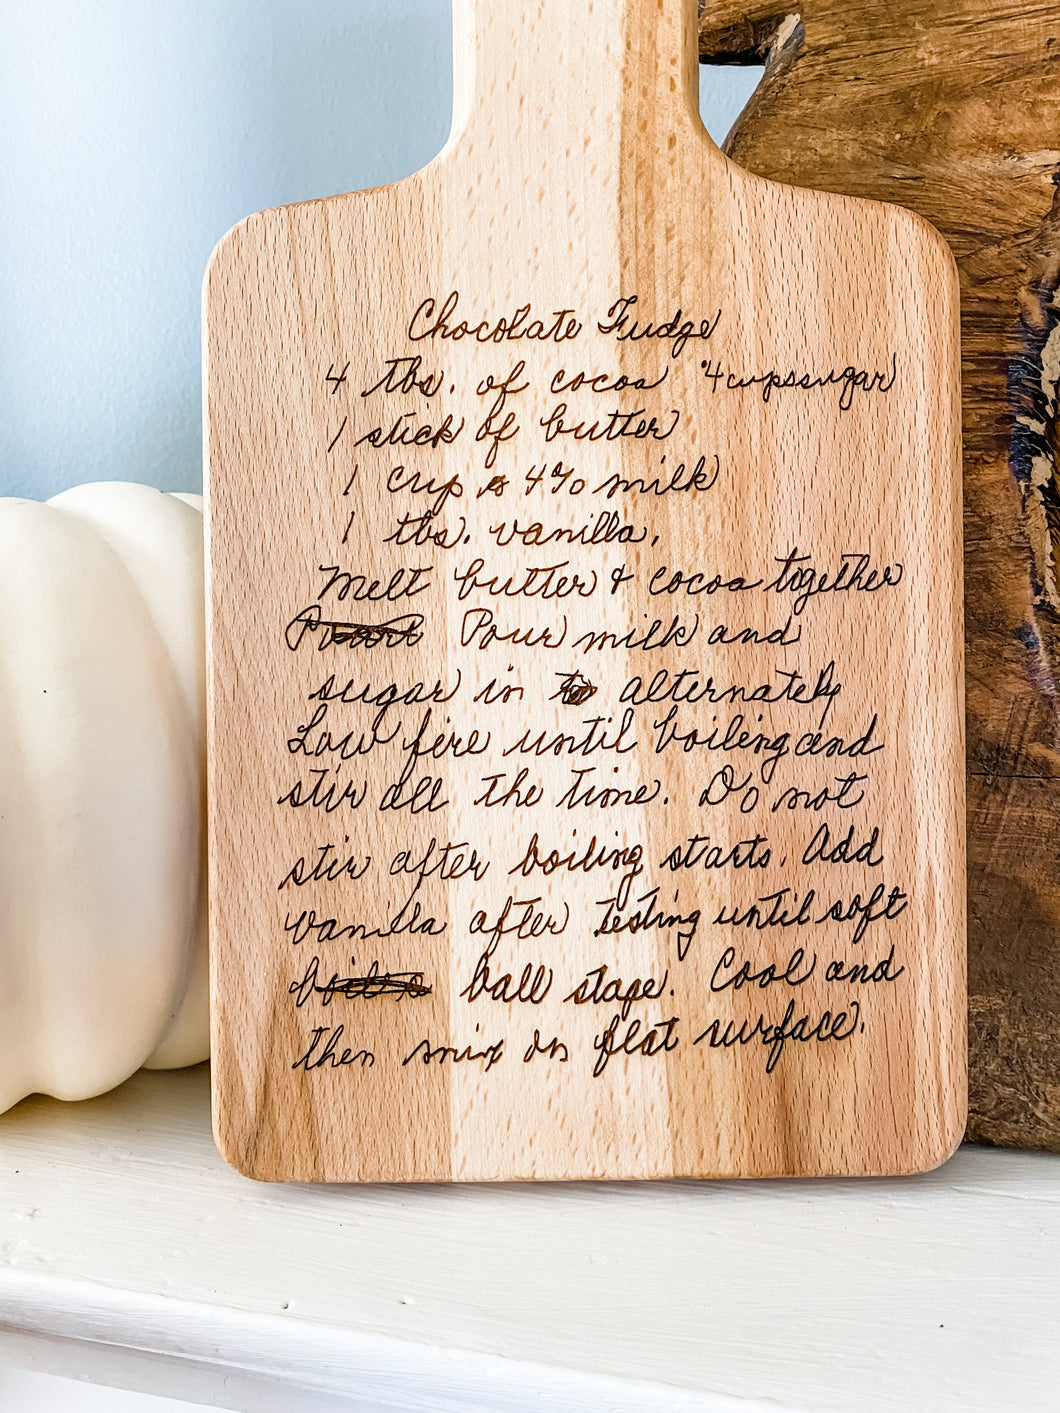 Chocolate Fudge
4 tbs. of cocoa 4 cups sugar
1 stick of butter
1 cup 4% milk
1 tbs. vanilla,
Melt butter & cocoa together
Pour milk and
sugar in alternately
Low fire until boiling and
stir all the time. Do not
stir after boiling starts. Add
vanilla after testing until soft
ball stage. Cool and
then mix on flat surface.